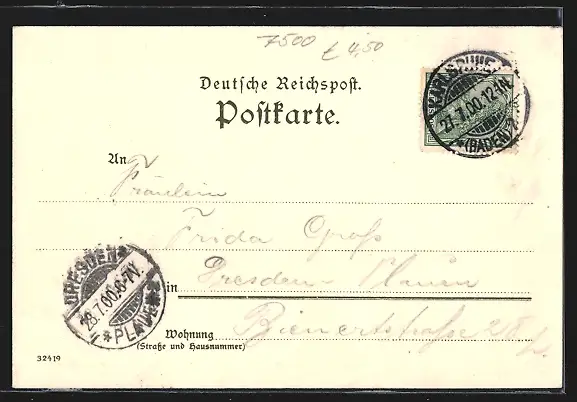 7500 £ 4,50
Deutsche Reichspost.
Postkarte.
KARLSRUHE
27.7.00.12-1N.
*(BADEN)2.*
An
Fräulein
Frida Groß
in Dresden-Plauen
Wohnung Bienertstraße 25
(Straße und Hausnummer)
DRESDEN*
28.7.00.6-7V.
*PLAUEN*
32419